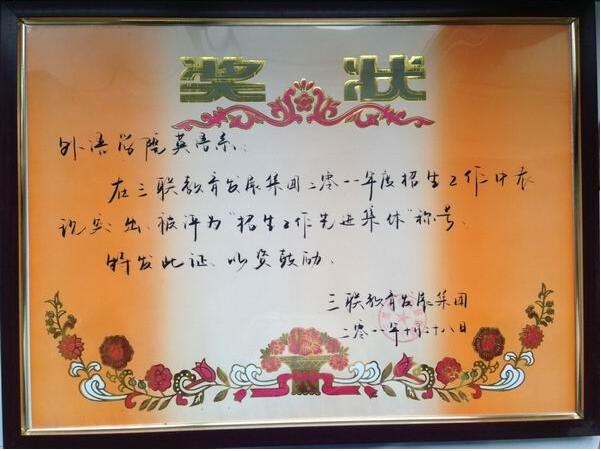 奖状
外语学院英语系:
在三联教育发展集团二零一一年度招生工作中表
现突出、被评为"招生工作先进集体"称号、
特发此证、以资鼓励、
三联教育发展集团
二零一一年十月二十八日